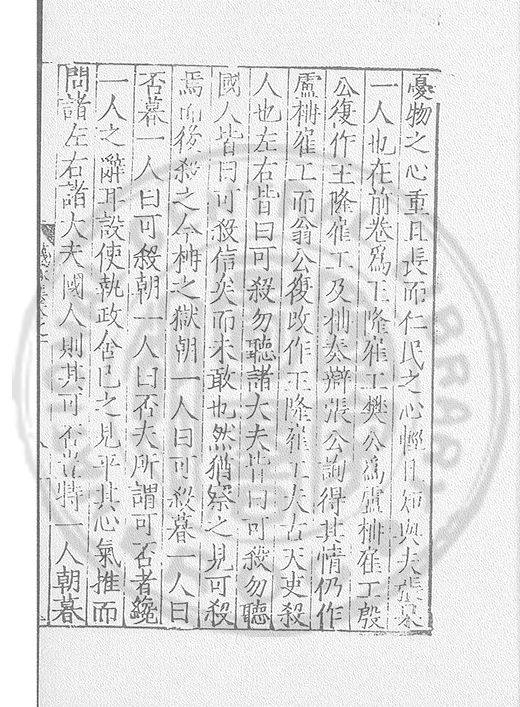 憂物之心重且長而仁民之心輕且短與夫張某
一人也在前卷爲王隆雇工樊公爲盧柟雇工殷
公復作王隆雇工及柟奏辯張公詢得其情仍作
盧柟雇工而翁公復改作王隆雇工夫古天吏殺
人也左右皆曰可殺勿聽諸大夫皆曰可殺勿聽
國人皆曰可殺信矣而未敢也然猶察之見可殺
焉而後殺之今柟之獄朝一人曰可殺暮一人曰
否暮一人曰可殺朝一人曰否夫所謂可否者纔
一人之辭耳設使執政舍已之見平其心氣推而
問諸左右諸大夫國人則其可否豈特一人朝暮